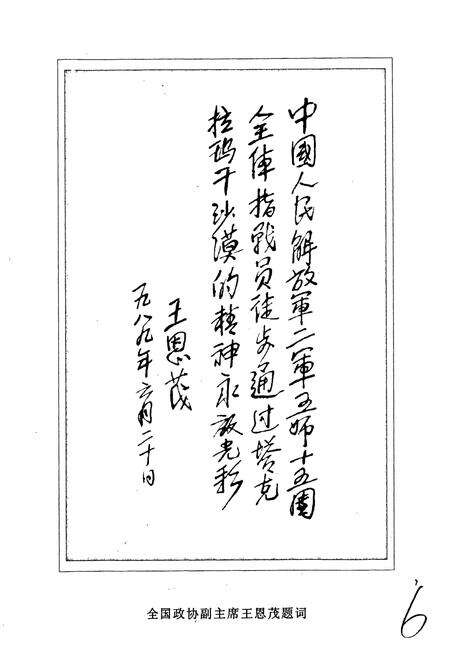 中國人民解放軍二軍五师十五團
全体指戰員徒步通过塔克
拉玛干沙漠的精神永放光彩
王恩茂
一九八九年六月二十日
全国政协副主席王恩茂题词
6